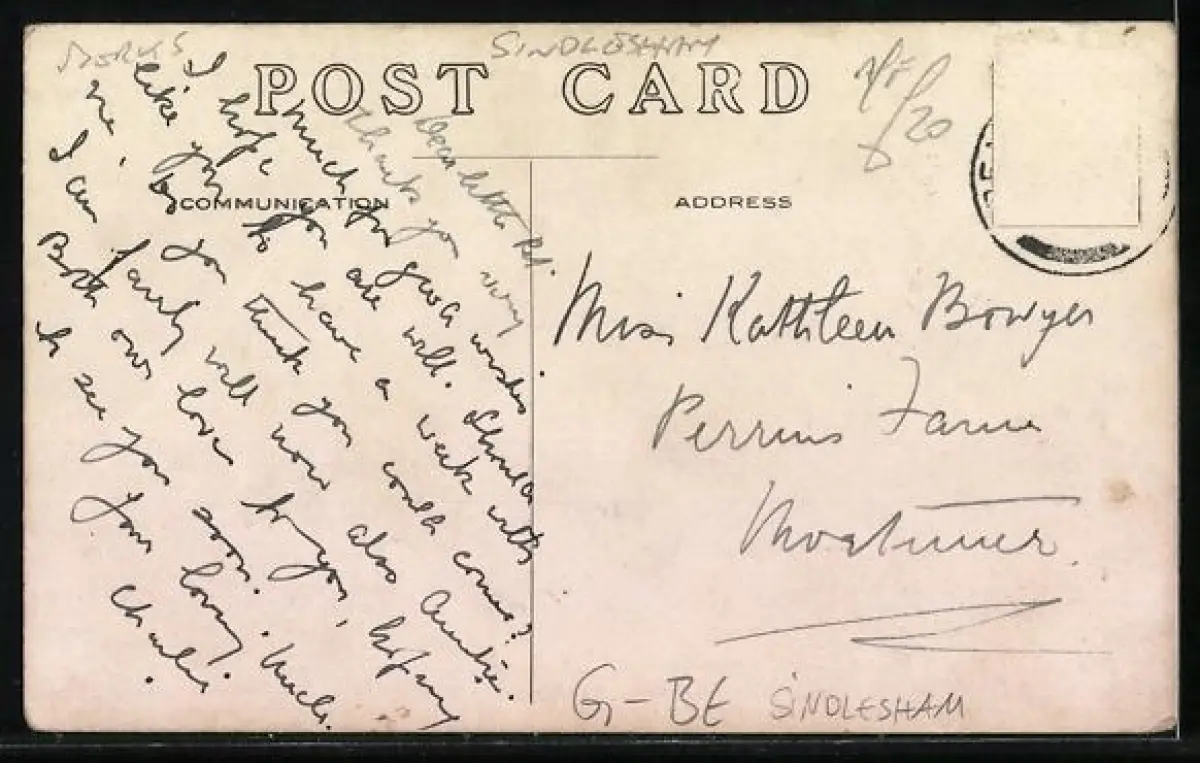 SINDLESHAM
POST CARD
COMMUNICATION
ADDRESS
Dear little
Thank you very
much for good wishes
I hope you are well. Should
like you to have a week with
me, do you think you could come?
I am fairly well now also Auntie.
Both our love to you, hoping
to see you soon. Much
Your loving
Charlie
Miss Kathleen Bowyer
Perrins Farm
Mortimer
G-BE SINDLESHAM